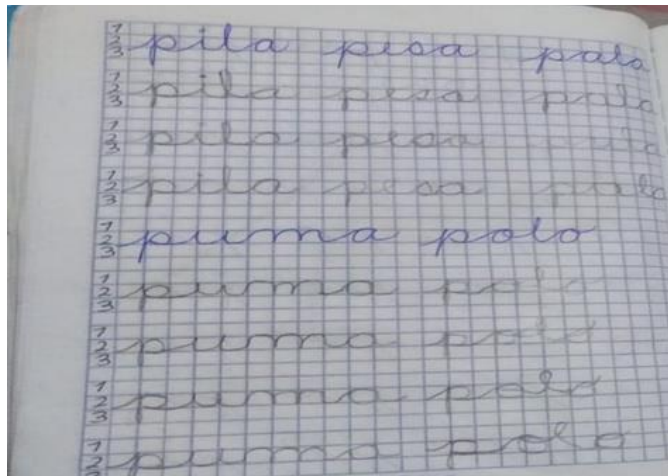 1 2 3 pila pesa palo
1 2 3 pila pesa palo
1 2 3 pila pesa
1 2 3 pila pesa palo
1 2 3 puma polo
1 2 3 puma polo
1 2 3 puma polo
1 2 3 puma polo
1 2 3 puma polo